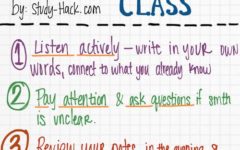 by: Study-Hack.com CLASS
1 Listen actively – write in your own
words, connect to what you already know
2 Pay attention & ask questions if smth
is unclear.
3 Review your notes in the evening &